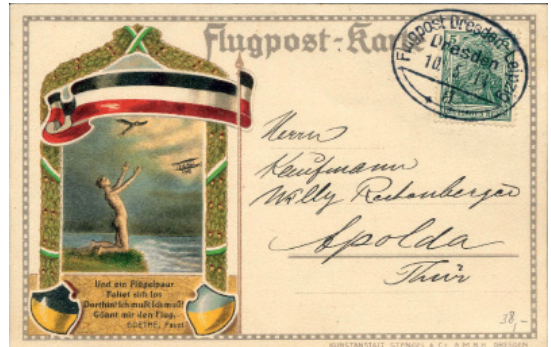 Flugpost-Kar
Flugpost Dresden-Leipzig
Dresden
10.
Herrn
Kaufmann
Willy
Apolda
Thür
Und ein Flügelpaar
Faltet sich los
Dorthin! Ich muß! Ich muß!
Gönnt mir den Flug.
GOETHE, Faust
38,-
KUNSTANSTALT STENGEL & Co. G.M.B.H. DRESDEN